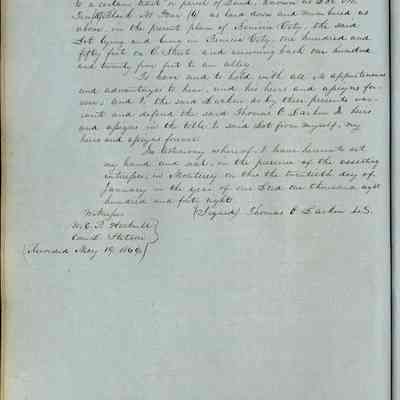 to a certain tract or parcel of Land, known as Lot No.
Ten (10) Block No. Four (4) as laid down and numbered as
above, in the present plan of Benicia City, the said
Lot lying and being in Benicia City, one hundred and
fifty feet on C Street and running back one hundred
and twenty five feet to an alley.
To have and to hold with all its appurtenances
and advantages to him, and his heirs and assigns for-
ever; and I, the said Larkin do by these presents war-
rant and defend the said Thomas O Larkin Jr heirs
and assigns in the title to said Lot from myself, my
heirs and assigns forever.
In testimony whereof, I have hereunto set
my hand and seal, in the presence of the assisting
witnesses, in Monterey on this the twentieth day of
January in the year of our Lord one thousand eight
hundred and forty eight
Witnesses (Signed) Thomas O Larkin L.S.
W. E. P. Hartnell
Stetson
(Recorded May 19, 1869)